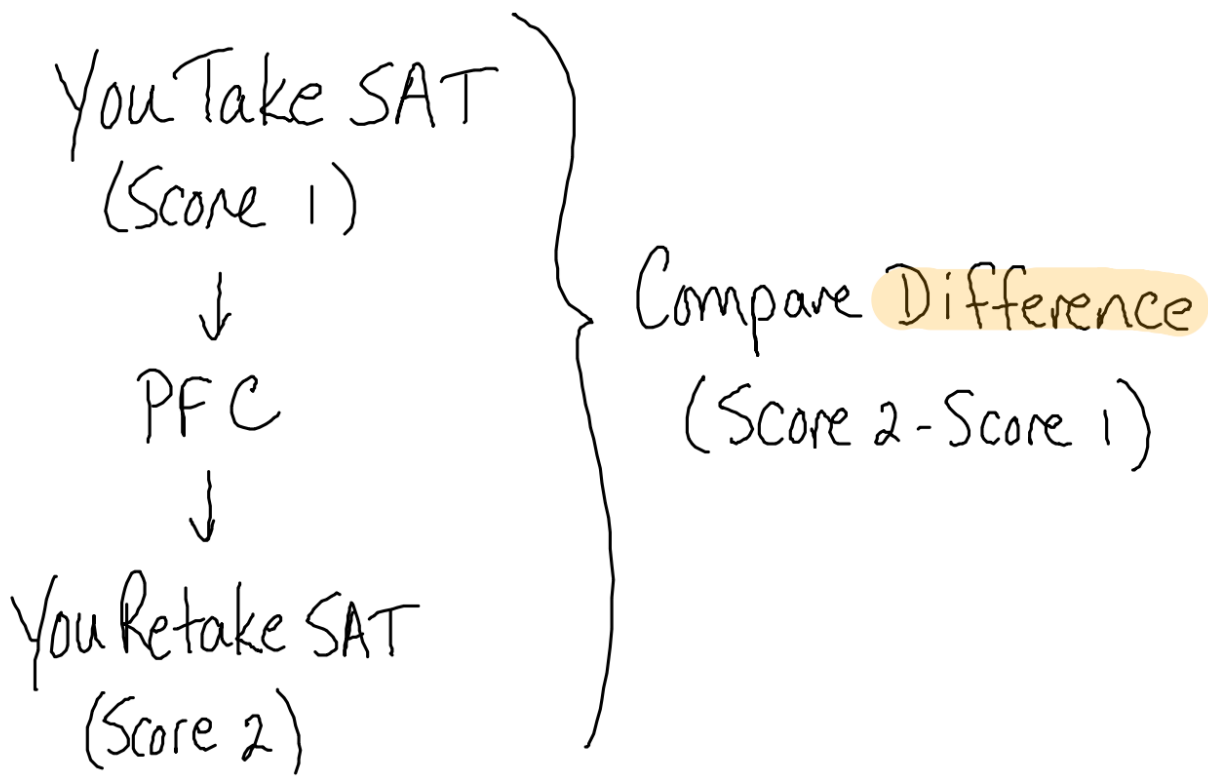 You Take SAT
(Score 1)
↓
PFC
↓
You Retake SAT
(Score 2)
Compare Difference
(Score 2 - Score 1)